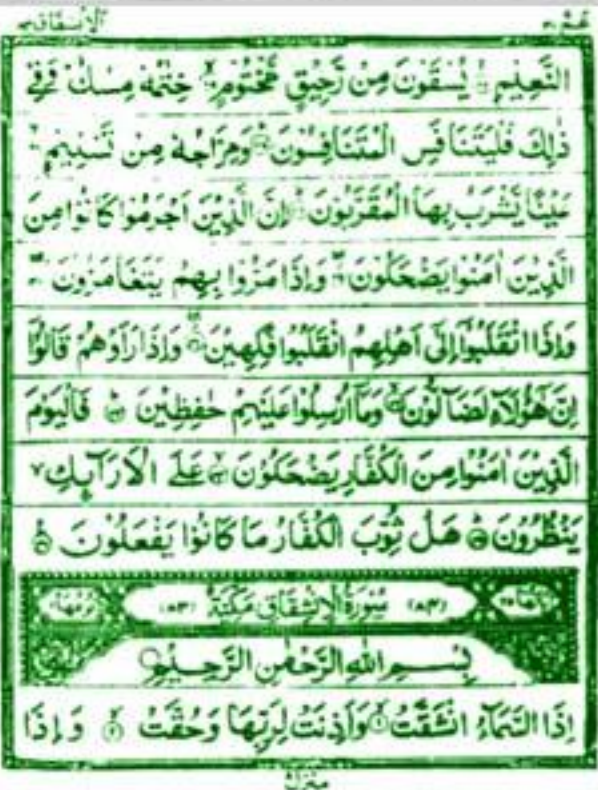 عم ٣٠ الانشقاق ٨٤
النَّعِيْمِ ۞ يُسْقَوْنَ مِنْ رَّحِيْقٍ مَّخْتُوْمٍ ۞ خِتٰمُهٗ مِسْكٌ ؕ وَفِيْ
ذٰلِكَ فَلْيَتَنَافَسِ الْمُتَنَافِسُوْنَ ۞ وَمِزَاجُهٗ مِنْ تَسْنِيْمٍ ۞
عَيْنًا يَّشْرَبُ بِهَا الْمُقَرَّبُوْنَ ۞ اِنَّ الَّذِيْنَ اَجْرَمُوْا كَانُوْا مِنَ
الَّذِيْنَ اٰمَنُوْا يَضْحَكُوْنَ ۞ وَاِذَا مَرُّوْا بِهِمْ يَتَغَامَزُوْنَ ۞
وَاِذَا انْقَلَبُوْۤا اِلٰۤى اَهْلِهِمُ انْقَلَبُوْا فَكِهِيْنَ ۞ وَاِذَا رَاَوْهُمْ قَالُوْۤا
اِنَّ هٰۤؤُلَآءِ لَضَآلُّوْنَ ۞ وَمَاۤ اُرْسِلُوْا عَلَيْهِمْ حٰفِظِيْنَ ۞ فَالْيَوْمَ
الَّذِيْنَ اٰمَنُوْا مِنَ الْكُفَّارِ يَضْحَكُوْنَ ۞ عَلَى الْاَرَآئِكِ ۙ
يَنْظُرُوْنَ ۞ هَلْ ثُوِّبَ الْكُفَّارُ مَا كَانُوْا يَفْعَلُوْنَ ۞
(٨٤) سُوْرَةُ الْاِنْشِقَاقِ مَكِّيَّةٌ (٨٣)
بِسْمِ اللّٰهِ الرَّحْمٰنِ الرَّحِيْمِ
اِذَا السَّمَآءُ انْشَقَّتْ ۞ وَاَذِنَتْ لِرَبِّهَا وَحُقَّتْ ۞ وَاِذَا
منزل